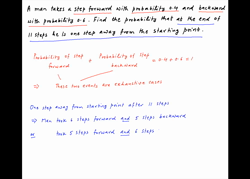 A man takes a step forward with probability 0.4 and backward
with probability 0.6. Find the probability that at the end of
11 steps he is one step away from the starting point.
Probability of step forward + Probability of step backward = 0.4 + 0.6 = 1
⇒ These two events are exhaustive cases
One step away from starting point after 11 steps
⇒ Man took 6 steps forward and 5 steps backward
or took 5 steps forward and 6 steps